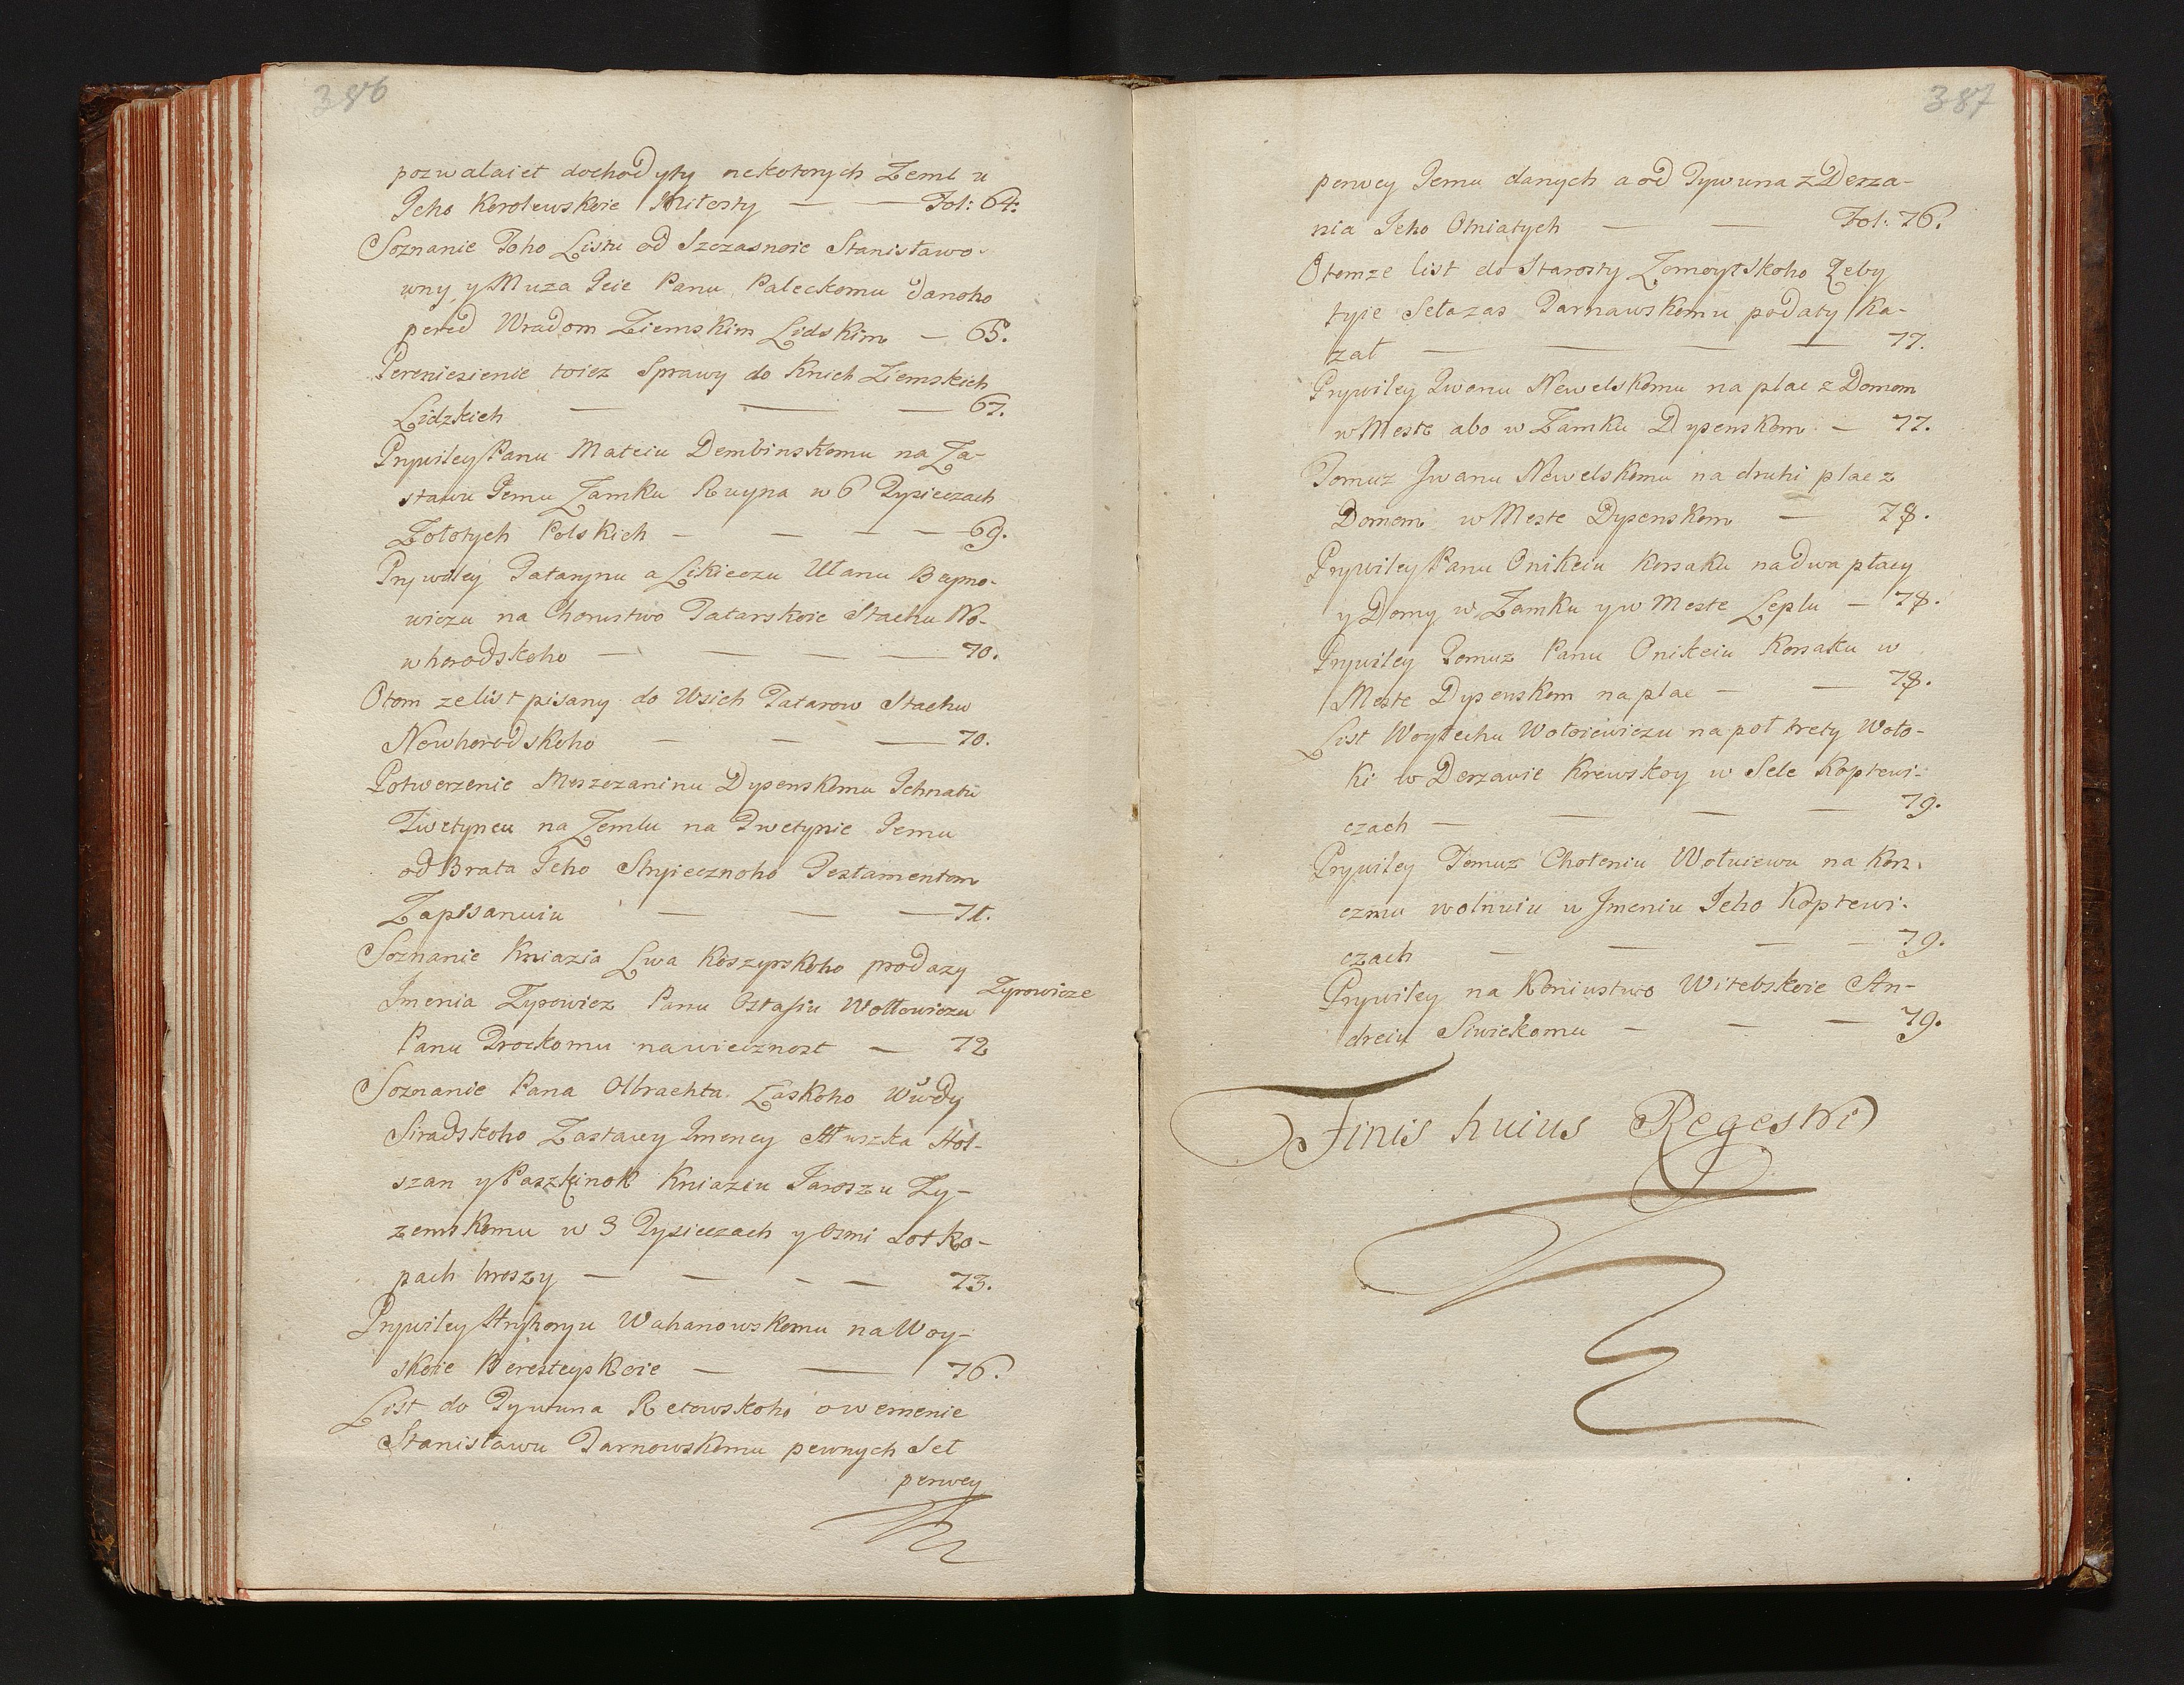 386
pozwalaiet dochodyty nekotorych Zeml u
Jeho Korolewskoie Miłosty — — Fol: 64:
Soznanie Toho Listu od Szczasnoie Stanisławo-
wny, y Muza Jeie Panu Paleckomu danoho
pered Wradom Ziemskim Lidskim — 65.
Pereniesienie toiez Sprawy do Knich Ziemskich
Lidzkich — — — 67.
Prywiley Panu Mateiu Dembinskomu na Za-
stawu Jemu Zamku Ruyna w 6 Tysieczach
Zołotych Polskich — — — — 69.
Prywiley Tatarynu aLikieczu Ułanu Baymo-
wiczu na Chorustwo Tatarskoie Stachu No-
whorodskoho — — — — 70.
Otom ze list pisany do Wsich Tatarow Stachu
Nowhorodskoho — — — 70.
Potwerzenie Meszczaninu Dysenskomu Ichnatu
Tiwetyncu na Zemlu na Dwetynie Jemu
od Brata Jeho Stryiecznoho Testamentom
Zapisanuiu — — — 71.
Soznanie Kniazia Lwa Koszyrskoho prodazy
Imenia Zyrowicz Panu Ostafiu Wołłowiczu Zyrowicze
Panu Trockomu na wiecznost — 72
Soznanie Pana Olbrachta Łaskoho Wwdy
Siradskoho Zastawy Imeney Hłuszka Hol-
szan y Paszkinok Kniaziu Jaroszu Zy-
zemskomu w 3 Tysieczach y Osmi sot Ko-
pach hroszy — — — — 73.
Prywiley Hryhoryu Wahanowskomu na Woy-
skoie Beresteyskoie — — 76.
List do Tywuna Retowskoho o wernenie
Stanisławu Tarnowskomu pewnych Seł
perwey
387
perwey Jemu danych a od Tywuna z Derza-
nia Jeho Otniatych — — Fol: 76.
O tomze list do Starosty Zomoytskoho Zeby
tyie Sela zas Tarnawskomu podaty Ka-
zał — — — — 77.
Prywiley Iwanu Newelskomu na plac z Domom
w Meste abo w Zamku Dysenskom — 77.
Tomuz Iwanu Newelskomu na druhi plac z
Domom w Meste Dysenskom — 78.
Prywiley Panu Onikeiu Korsaku na dwa płacy
y Domy w Zamku y w Meste Leplu — 78.
Prywiley Tomuz Panu Onikeiu Korsaku w
Meste Dysenskom na plac — — 78.
List Woytechu Wołoiewiczu na poł trety Woło-
ki w Derzawie Krewskoy w Sele Koptewi-
czach — — — — 79.
Prywiley Tomuz Choteniu Wołuiewu na Kor-
czmu wolnuiu w Imeniu Jeho Koptewi-
czach — — — — 79.
Prywiley na Koniustwo Witebskoie An-
dreiu Siwickomu — — — 79.
Finis huius Regestri